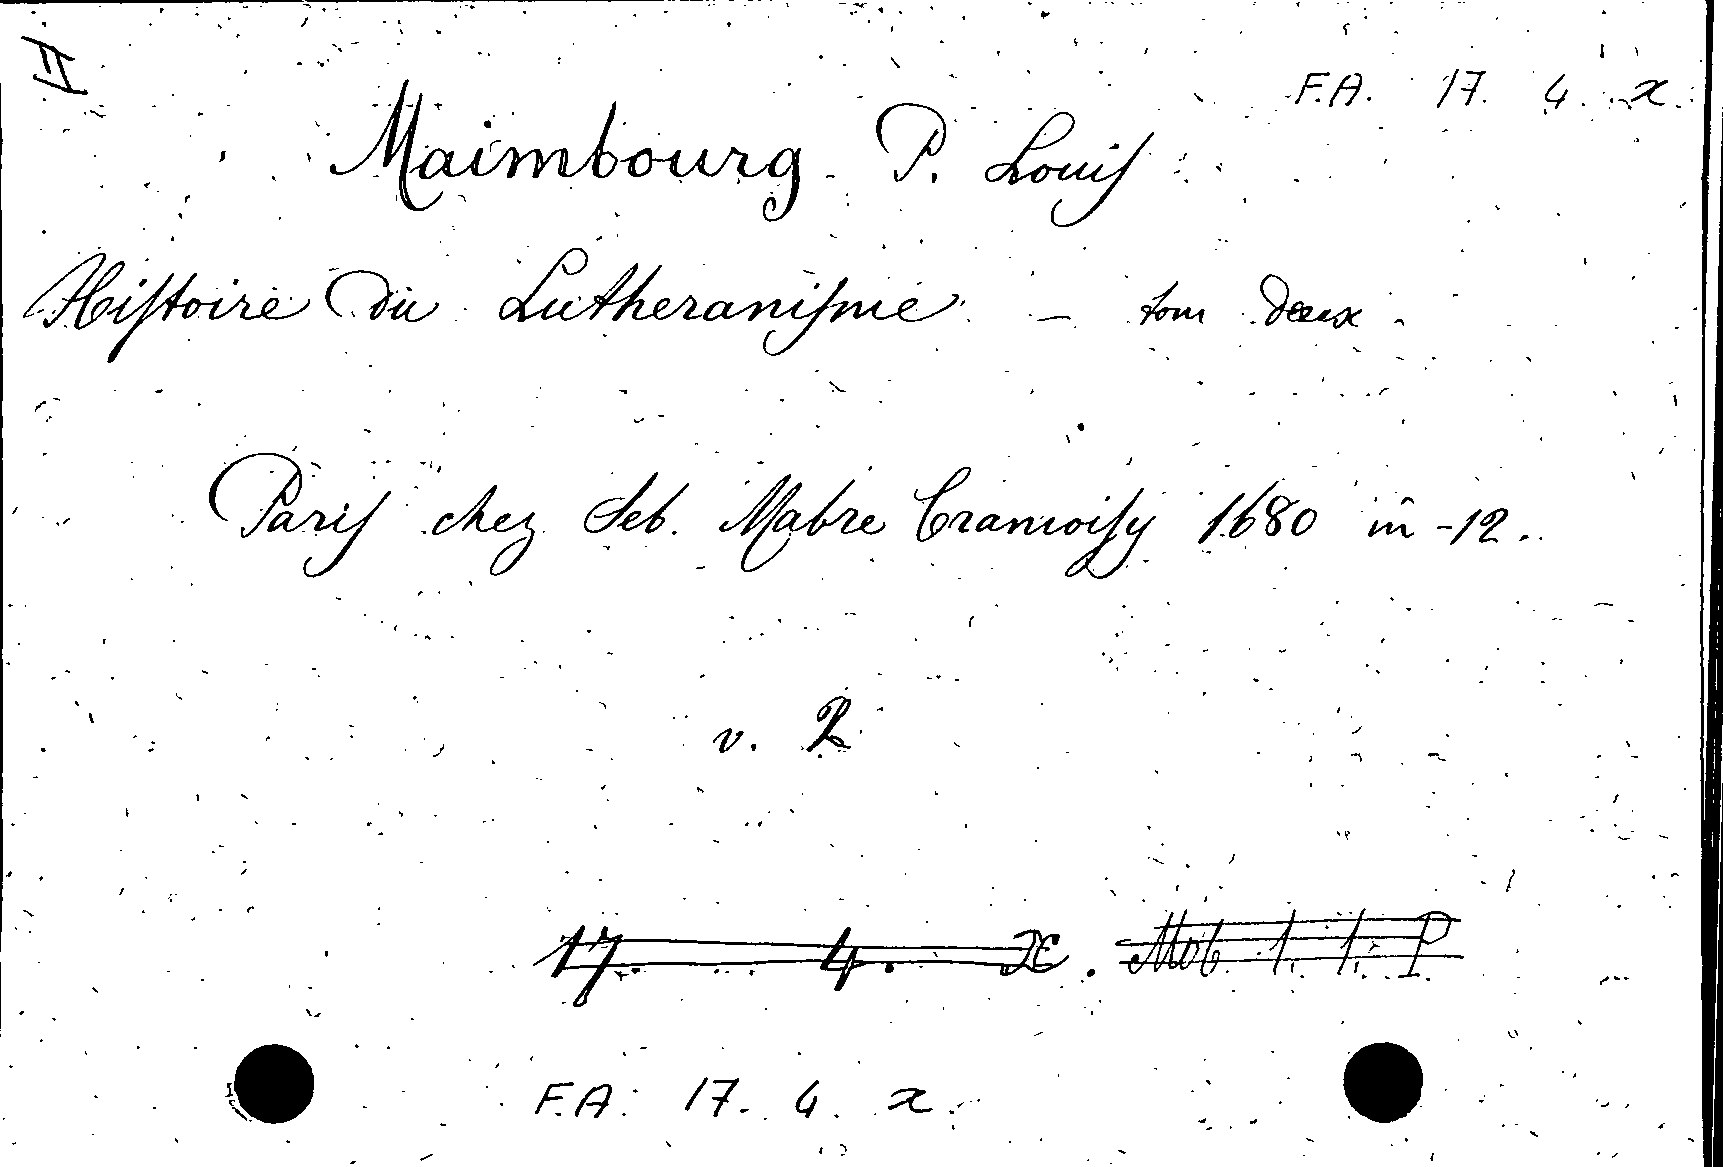 II
F.A. 17. 4. x.
Maimbourg P. Louis
Histoire du Lutheranisme – tom deux.
Paris chez Seb. Mabre Cramoisy 1680 in-12.
v. 2
17. 4. X. Mob. 1. 1. P
F.A. 17. 4. x.